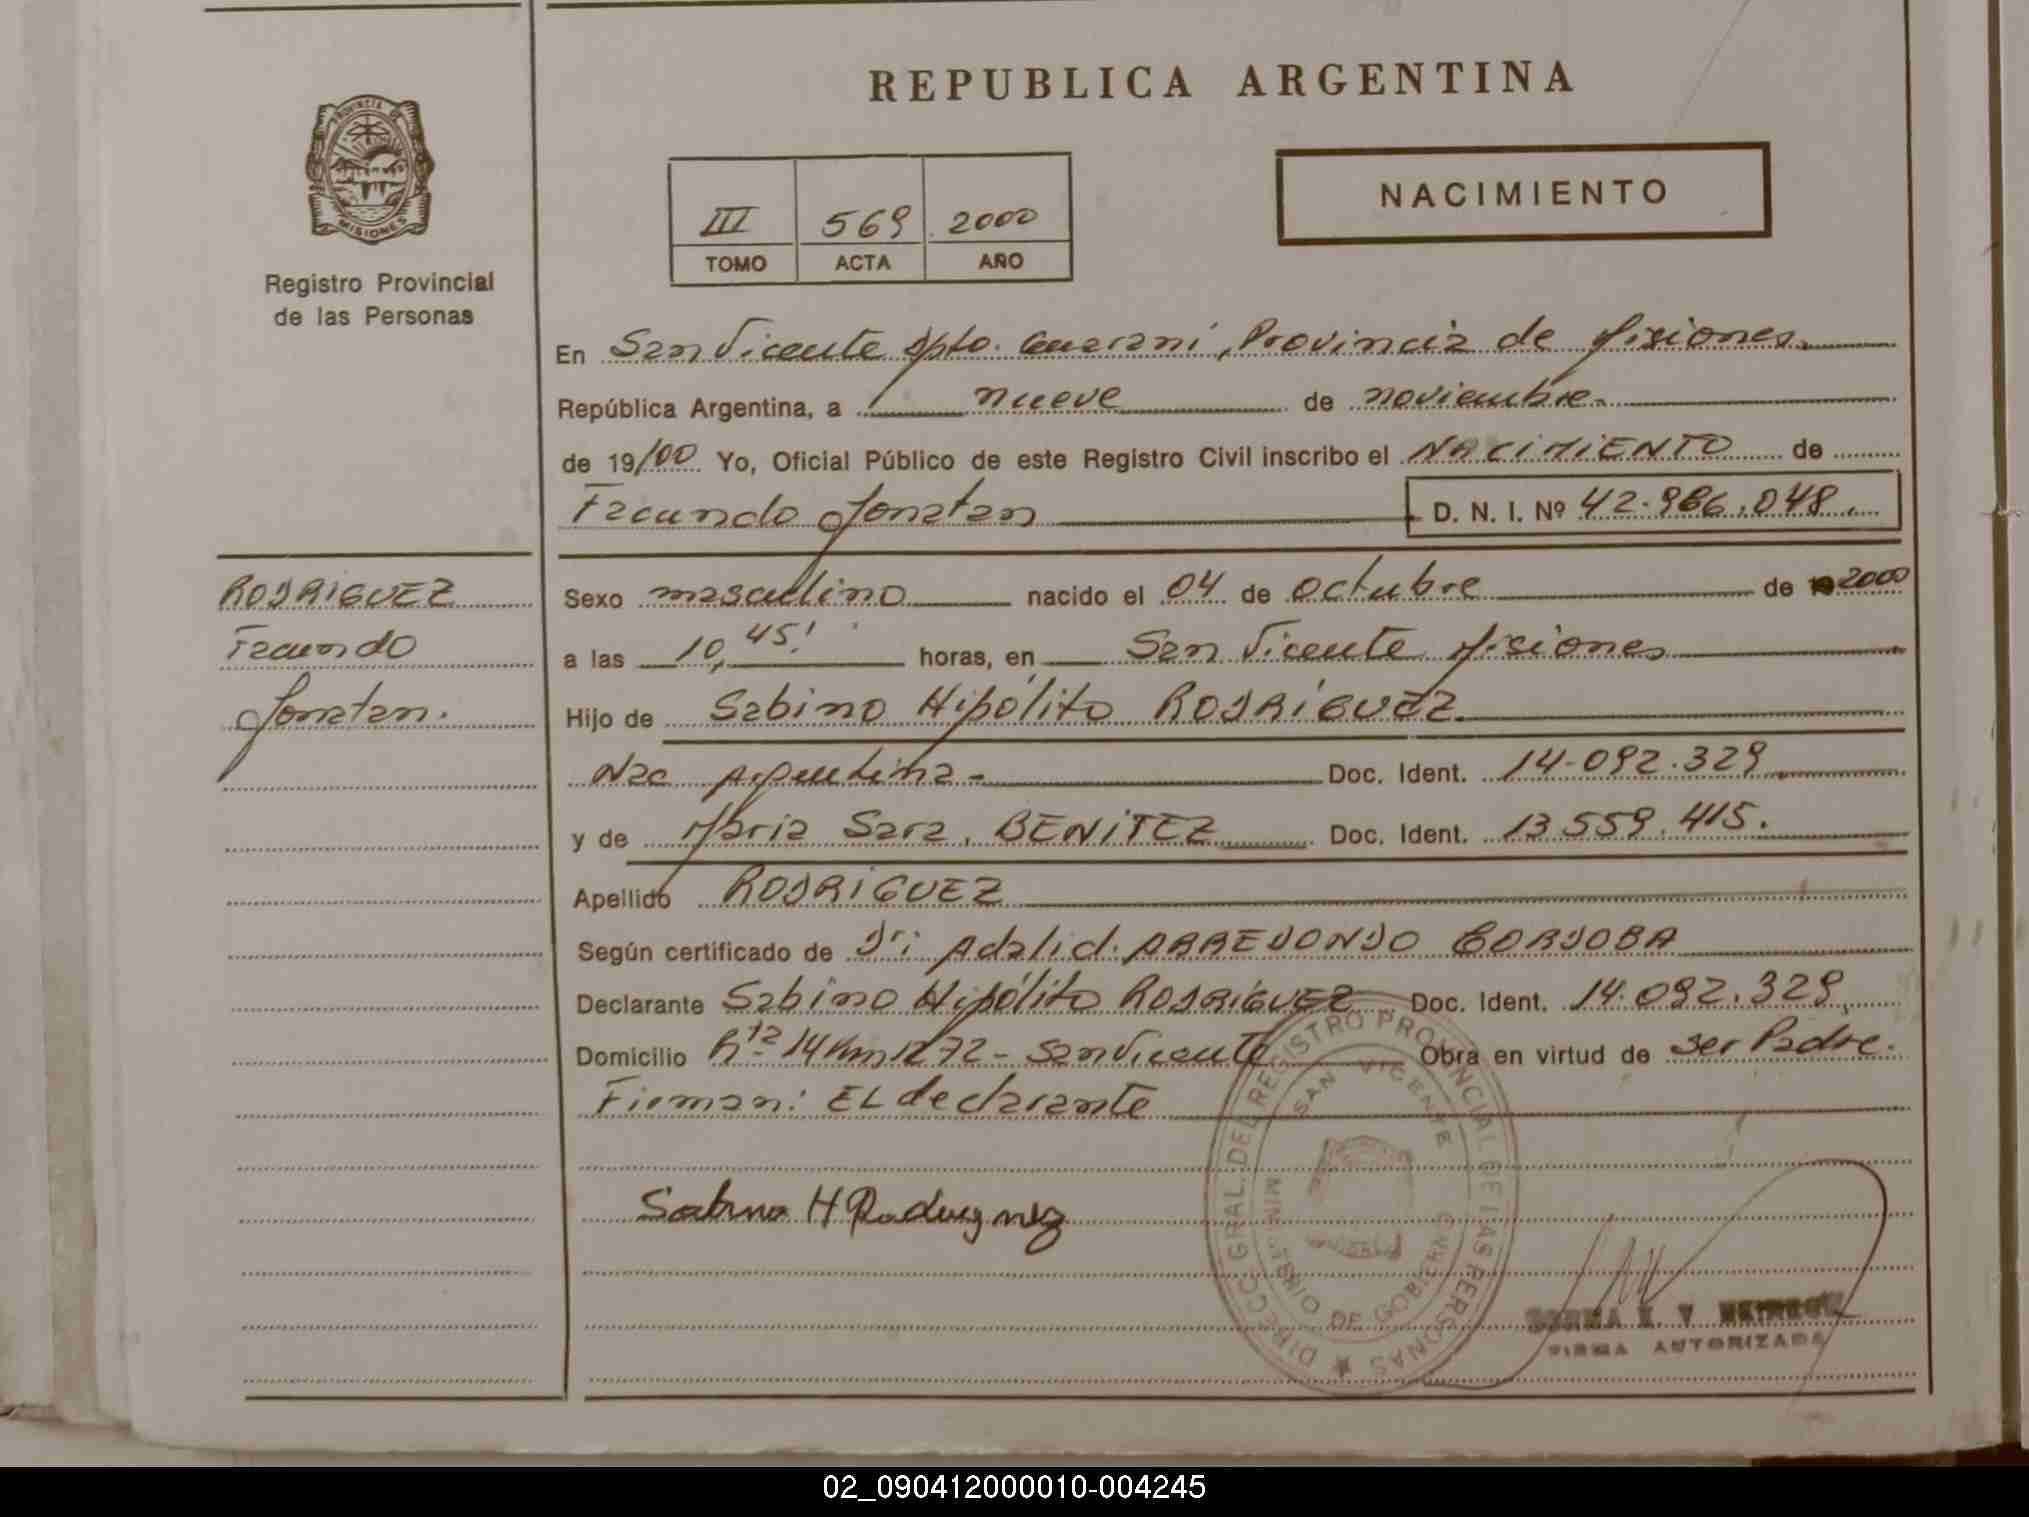 REPUBLICA ARGENTINA
PROVINCIA DE
MISIONES
Registro Provincial
de las Personas
NACIMIENTO
III 569 2000
TOMO ACTA AÑO
En San Vicente Dpto. Guaraní, Provincia de Misiones.
República Argentina, a nueve de noviembre
de 19/00 Yo, Oficial Público de este Registro Civil inscribo el NACIMIENTO de
Facundo Jonatan D. N. I. Nº 42.986.048.
RODRIGUEZ
Facundo
Jonatan.
Sexo masculino nacido el 04 de octubre de 2000
a las 10,45' horas, en San Vicente Misiones
Hijo de Sabino Hipólito RODRIGUEZ
Nac Argentina - Doc. Ident. 14.092.329
y de Maria Sara. BENITEZ Doc. Ident. 13.559.415.
Apellido RODRIGUEZ
Según certificado de Dr: Adalid. ARREDONDO CORDOBA
Declarante Sabino Hipólito RODRIGUEZ Doc. Ident. 14.092.329
Domicilio 14 Km 1272 - San Vicente Obra en virtud de ser Padre.
Firman: EL declarante
Sabino H Rodriguez
DIRECC. GRAL. DEL REGISTRO PROVINCIAL DE LAS PERSONAS
SAN VICENTE
MINISTERIO DE GOBIERNO
FIRMA AUTORIZADA
02_090412000010-004245